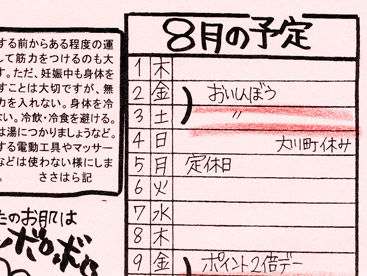 する前からある程度の運
して筋力をつけるのも大
す。ただ、妊娠中も身体を
すことは大切ですが、無
力を入れない。身体を冷
ない。冷飲・冷食を避ける。
は湯につかりましょうなど。
する電動工具やマッサー
などは使わない様にしま
ささはら記
たのお肌は
ボロボロ
8月の予定
1 木
2 金 おいひぼう
3 土 〃
4 日 大川町休み
5 月 定休日
6 火
7 水
8 木
9 金 ポイント2倍デー